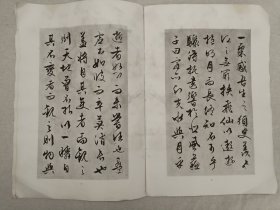 一粟哀吾生之須臾羨長
江之無窮挾飛仙以遨遊
抱明月而長終知不可乎
驟得託遺響於悲風蘇
子曰客亦知夫水與月乎
逝者如斯而未嘗往也盈
虛者如彼而卒莫消長也
蓋將自其變者而觀之
則天地曾不能以一瞬自
其不變者而觀之則物與